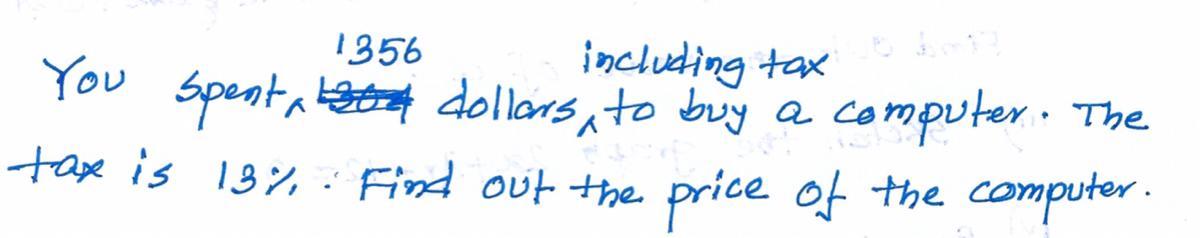 You spent 1356 dollars, including tax to buy a computer. The
tax is 13%. Find out the price of the computer.